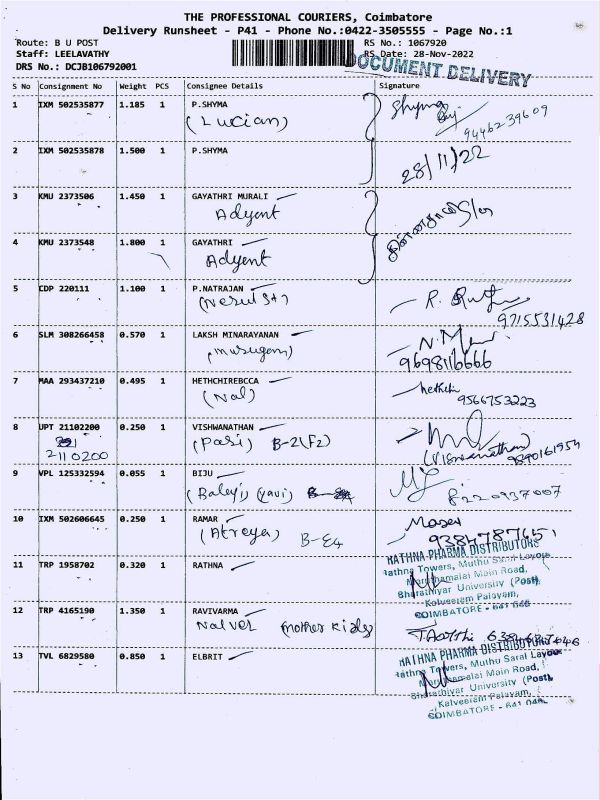 THE PROFESSIONAL COURIERS, Coimbatore
Delivery Runsheet - P41 - Phone No.:0422-3505555 - Page No.:1
Route: B U POST
RS No.: 1067920
Staff: LEELAVATHY
RS Date: 28-Nov-2022
DRS No.: DCJB106792001
DOCUMENT DELIVERY
S No Consignment No Weight PCS Consignee Details Signature
1 IXM 502535877 1.185 1 P.SHYMA
(Lucian)
Shyma
9446239609
2 IXM 502535878 1.500 1 P.SHYMA
28/11/22
3 KMU 2373506 1.450 1 GAYATHRI MURALI
Adyent
4 KMU 2373548 1.800 1 GAYATHRI
Adyent
5 CDP 220111 1.100 1 P.NATRAJAN
R.
9715531428
6 SLM 308266458 0.570 1 LAKSH MINARAYANAN
(Murugan)
N.M
9698116666
7 MAA 293437210 0.495 1 HETHCHIREBCCA
(Nal)
9566753223
8 UPT 21102200 0.250 1 VISHWANATHAN
2110200
(Pari) B-2(F2)
(Viswanathan)
9890161954
9 VPL 125332594 0.055 1 BIJU
(Balaji) (Yavi)
8220937007
10 IXM 502606645 0.250 1 RAMAR
(Atreya) B-E4
9384787651
11 TRP 1958702 0.320 1 RATHNA
RATHNA PHARMA DISTRIBUTORS
Rathna Towers, Muthu Saral Layout
Maruthamalai Main Road,
Bharathiyar University (Post)
Kalveeram Palayam,
COIMBATORE - 641 046
12 TRP 4165190 1.350 1 RAVIVARMA
Nalvel mother kids
13 TVL 6829580 0.850 1 ELBRIT
RATHNA PHARMA DISTRIBUTORS
Rathna Towers, Muthu Saral Layout
Maruthamalai Main Road,
Bharathiyar University (Post),
Kalveeram Palayam,
COIMBATORE - 641 046